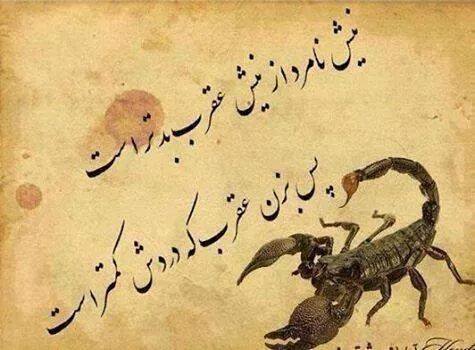 نیش نامرد از نیش عقرب بدتر است
پس بزن عقرب که دردش کمتر است